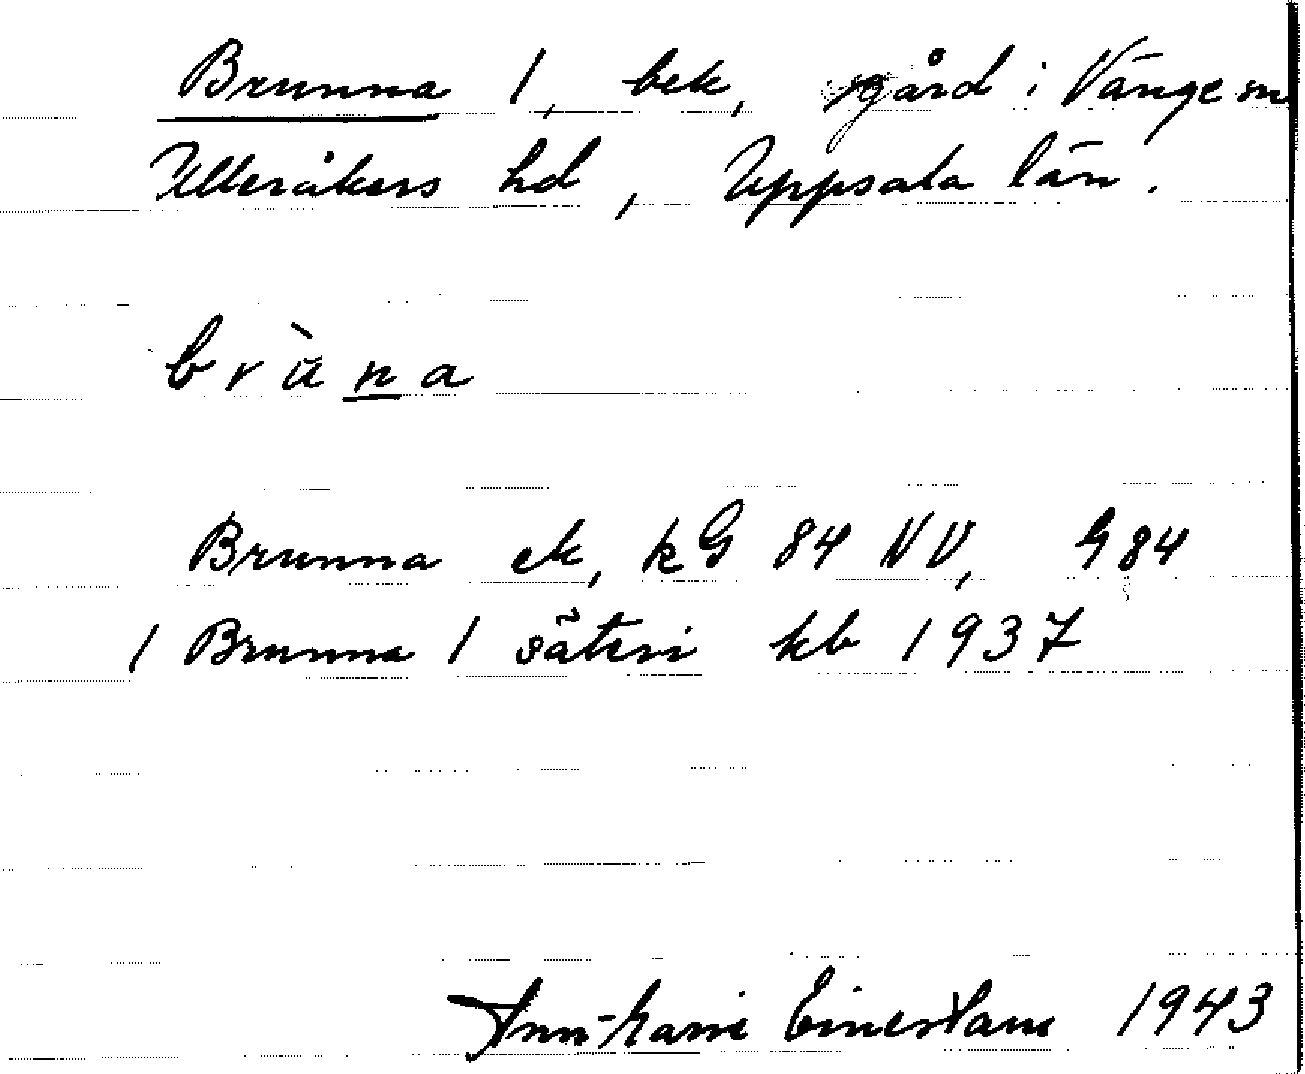 Brunna 1, bek, gård i Vänge sn
Ulleråkers hd, Uppsala län.
brùna
Brunna ek, kG 84 NV, G84
/ Brunna 1 säteri kb 1937
Ann-Marie 1943